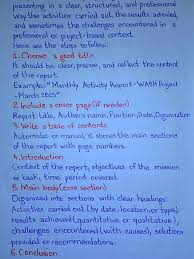 presenting in a clear, structured, and professional
way the activities carried out, the results achieved,
and sometimes the challenges encountered in a
professional or project-based context.
Here are the steps to follow:
1. Choose a good title
It should be clear, precise, and reflect the content
of the report.
Example: "Monthly Activity Report - WASH Project
- March 2025"
2. Include a cover page (if needed)
Report title, Author's name, Position, Date, Organisation
3. Write a table of contents
Automatic or manual, it shows the main sections
of the report with page numbers.
4. Introduction
Context of the report, objectives of the mission
or task, time period covered.
5. Main body (core section)
Organized into sections with clear headings:
Activities carried out (by date, location, or type),
results achieved (quantitative or qualitative),
challenges encountered (with causes), solutions
provided or recommendations.
6. Conclusion